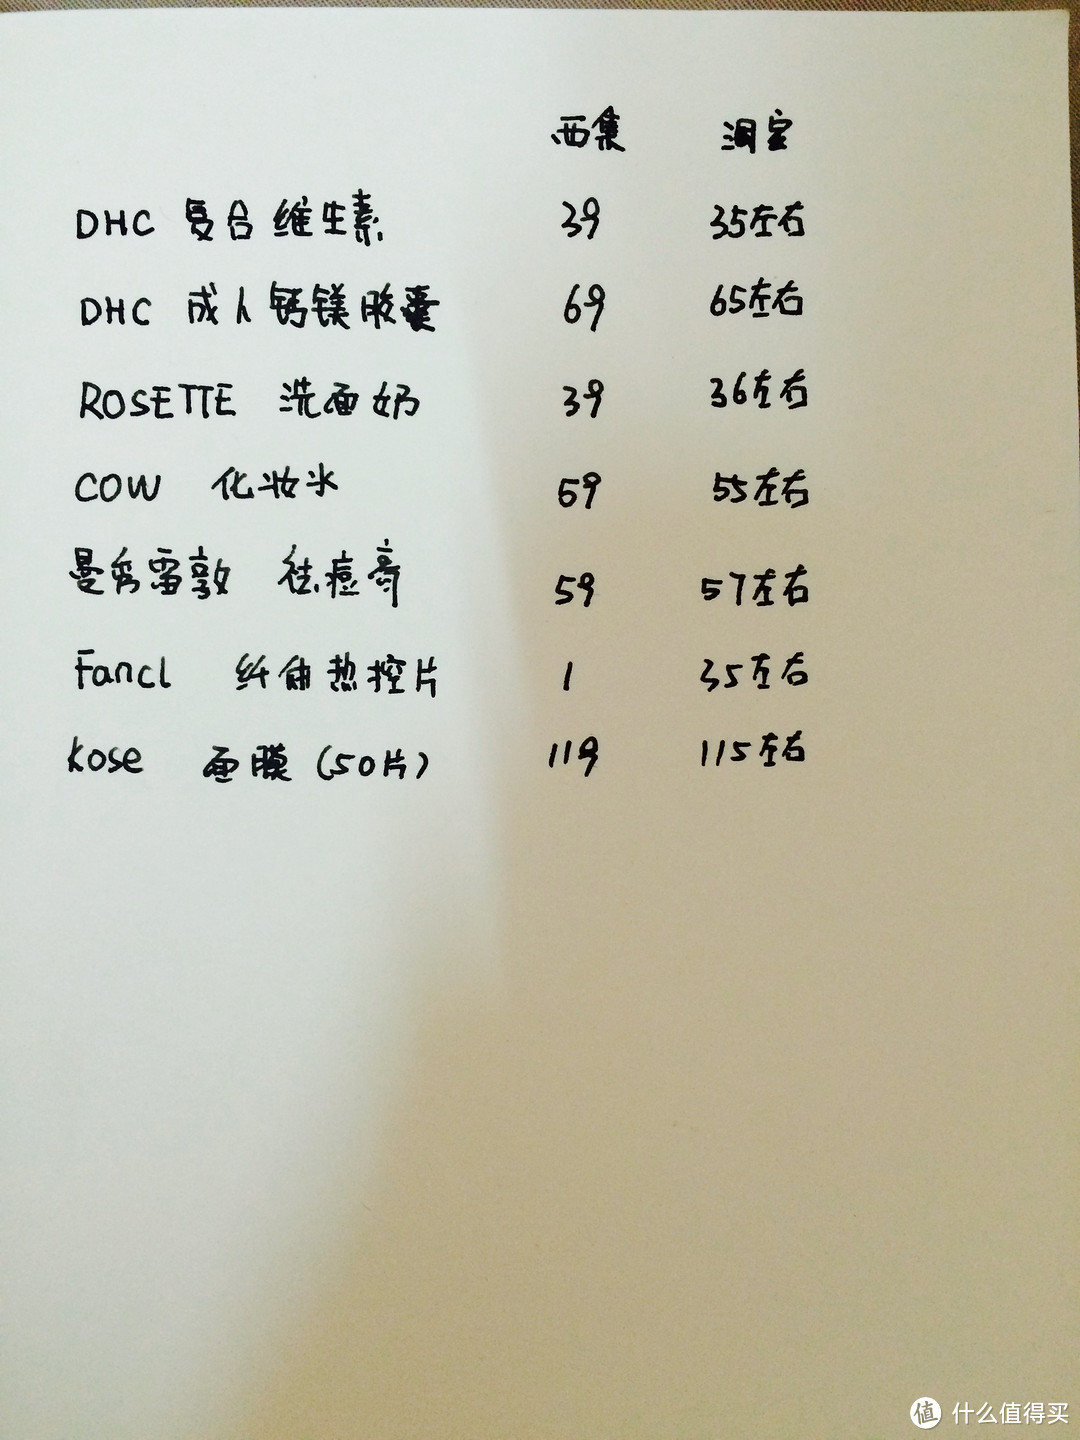 西集 淘宝
DHC 复合维生素 39 35左右
DHC 成人钙镁胶囊 69 65左右
ROSETTE 洗面奶 39 36左右
COW 化妆水 59 55左右
曼秀雷敦 祛痘膏 59 57左右
Fancl 纤体热控片 1 35左右
Kose 面膜(50片) 119 115左右
值 什么值得买